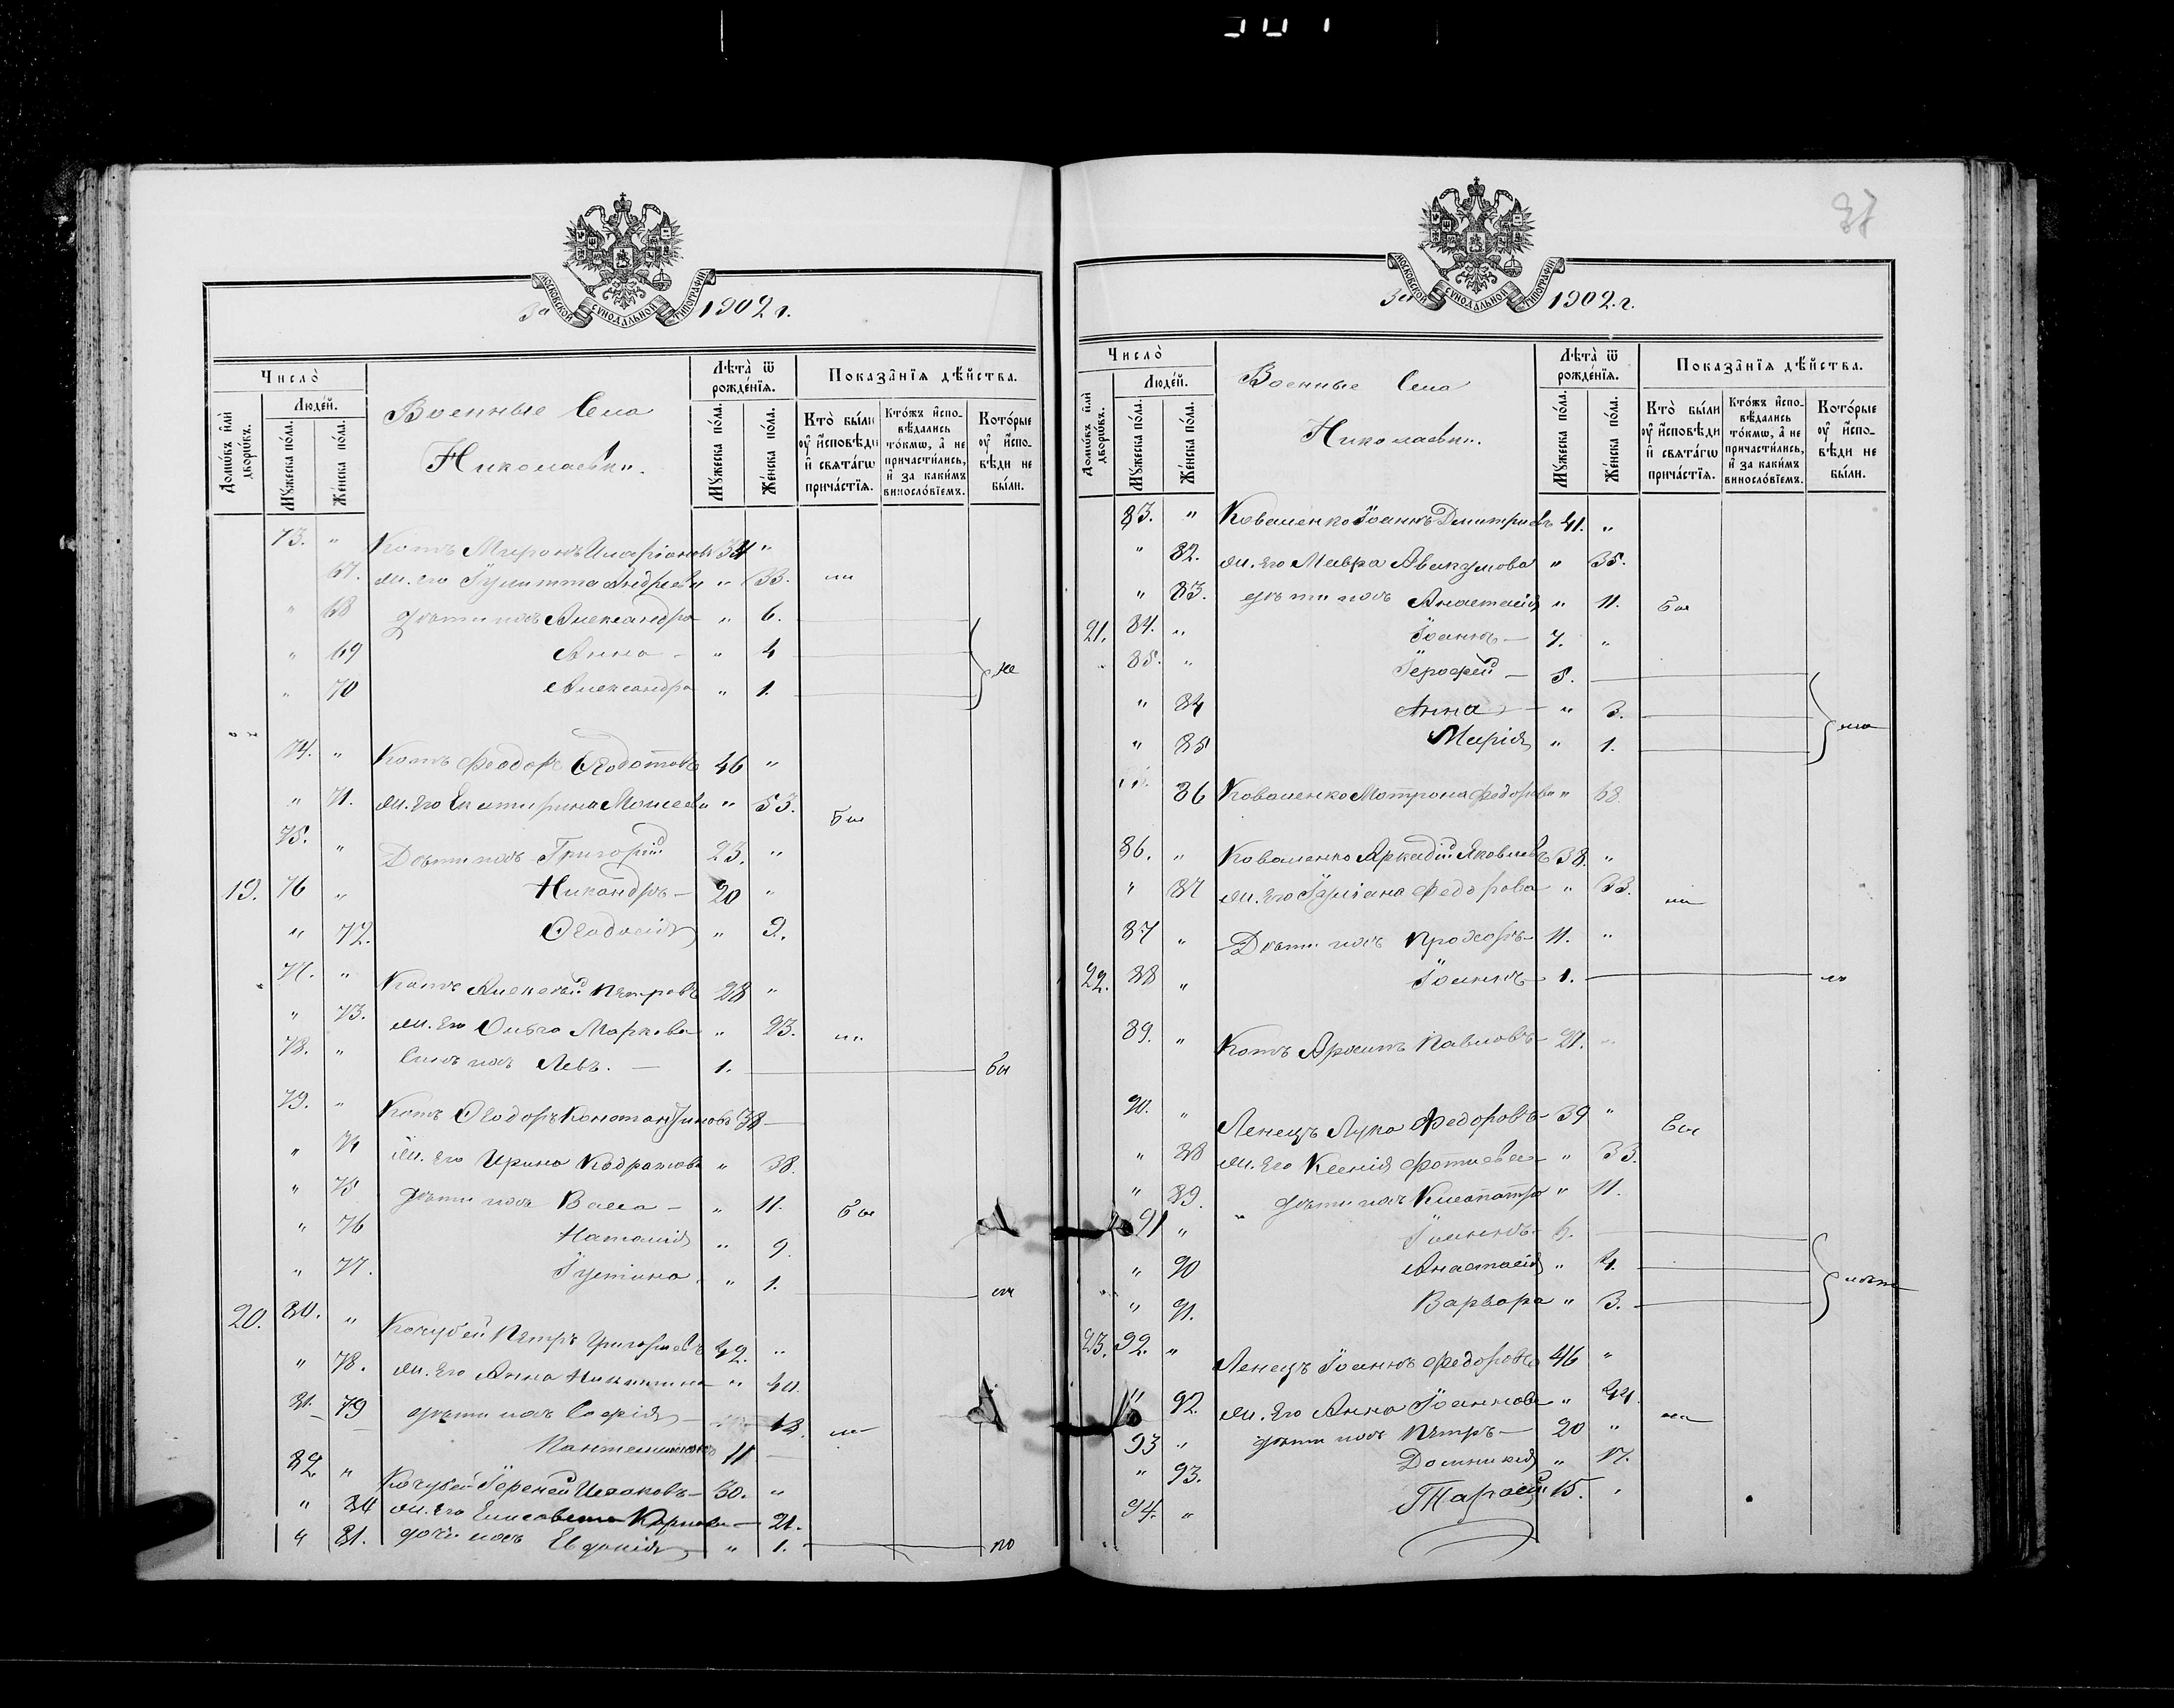 За 1902 г.
МОСКОВСКОЙ СУНОДАЛЬНОЙ ТИПОГРАФІИ
Число̀
Люде́й.
Домѡ́въ и҆лѝ дворѡ́въ.
Мꙋ́жеска по́ла.
Же́нска по́ла.
Военные Села
Николаевки.
Лѣта̀ ѿ рожде́нїя.
Мꙋ́жеска по́ла.
Же́нска по́ла.
Показа̑нїя дѣ́йства.
Кто̀ бы́ли оу҆ и҆сповѣди и҆ свята́гѡ прича́стїя.
Кто́жъ и҆спо-вѣдались то́кмѡ, а҆ не причасти́лись, и҆ за каки́мъ виносло́вїемъ.
Кото́рые оу҆ и҆спо-вѣди не бы́ли.
73. " Котъ Миронъ Иларіоновъ 34 "
67. жн. его Іулитта Андреева " 33.
" 68 дѣти ихъ Александра " 6.
" 69 Анна - " 4
" 70 Александра " 1.
74. " Котъ Феодоръ Ѳеодотовъ 46 "
" 71. жн. Его Екатирина Моисеева " 53. Бы
75. " Дѣти ихъ Григорій 23. "
19. 76 " Никандръ - 20 "
" 72. Ѳеодосія " 9.
77. " Котъ Алексѣй Петровъ 28 "
" 73. жн. Его Ольга Маркова " 23.
78. " Сынъ ихъ Левъ. - 1. Бы
79. " Котъ Ѳеодоръ Константиновъ 38 -
" 74 жн. его Ирина Кодратова " 38.
" 75 дѣти ихъ Васса - " 11. Бы
" 76 Наталія " 9.
" 77. Іустина " 1.
20. 80. " Кочубей Петръ Григорьевъ 42. "
" 78. жн. Его Анна Никитина " 40.
81. 79 дѣти ихъ Софія - 13.
Пантелимонъ 11 -
82 " Кочубей Іеремей Исааковъ - 30. "
" 80 жн. его Елисавета Карпова - 21.
" 81. дочь ихъ Евдокія " 1.
37
За 1902. г.
МОСКОВСКОЙ СУНОДАЛЬНОЙ ТИПОГРАФІИ
Число̀
Люде́й.
Домѡ́въ и҆лѝ дворѡ́въ.
Мꙋ́жеска по́ла.
Же́нска по́ла.
Военные Села
Николаевки.
Лѣта̀ ѿ рожде́нїя.
Мꙋ́жеска по́ла.
Же́нска по́ла.
Показа̑нїя дѣ́йства.
Кто̀ бы́ли оу҆ и҆сповѣди и҆ свята́гѡ прича́стїя.
Кто́жъ и҆спо-вѣдались то́кмѡ, а҆ не причасти́лись, и҆ за каки́мъ виносло́вїемъ.
Кото́рые оу҆ и҆спо-вѣди не бы́ли.
83. " Коваленко Іоаннъ Димитріевъ 41. "
" 82. жн. Его Мавра Авакумова " 35.
" 83. дѣти ихъ Анастасія " 11. Бы
21. 84. " Іоаннъ - 7. "
85. " Іерофей - 5.
" 84 Анна - " 3.
" 85 Марія " 1.
86 Коваленко Матрона Федорова " 68
86. " Коваленко Аркадій Яковлевъ 38. "
" 87 жн. Его Іуліана Федорова " 33.
87 " Дѣти ихъ Прохоръ - 11. "
22. 88 " Іоаннъ - 1.
89. " Котъ Павловъ - 21. "
90. " Ленецъ Лука Федоровъ - 39 " Бы
" 88 жн. Его Ксенія Фотиева - " 33.
" 89. дѣти ихъ Клеопатра " 11.
91 " Іоаннъ - 6.
" 90 Анастасія " 4.
" 91. Варвара " 3.
23. 92. " Ленецъ Іоаннъ Федоровъ 46 "
" 92. жн. Его Анна Іоаннова " 44.
93 " дѣти ихъ Петръ - 20 "
" 93. Домникія " 17.
94. " Тарасій 15. "